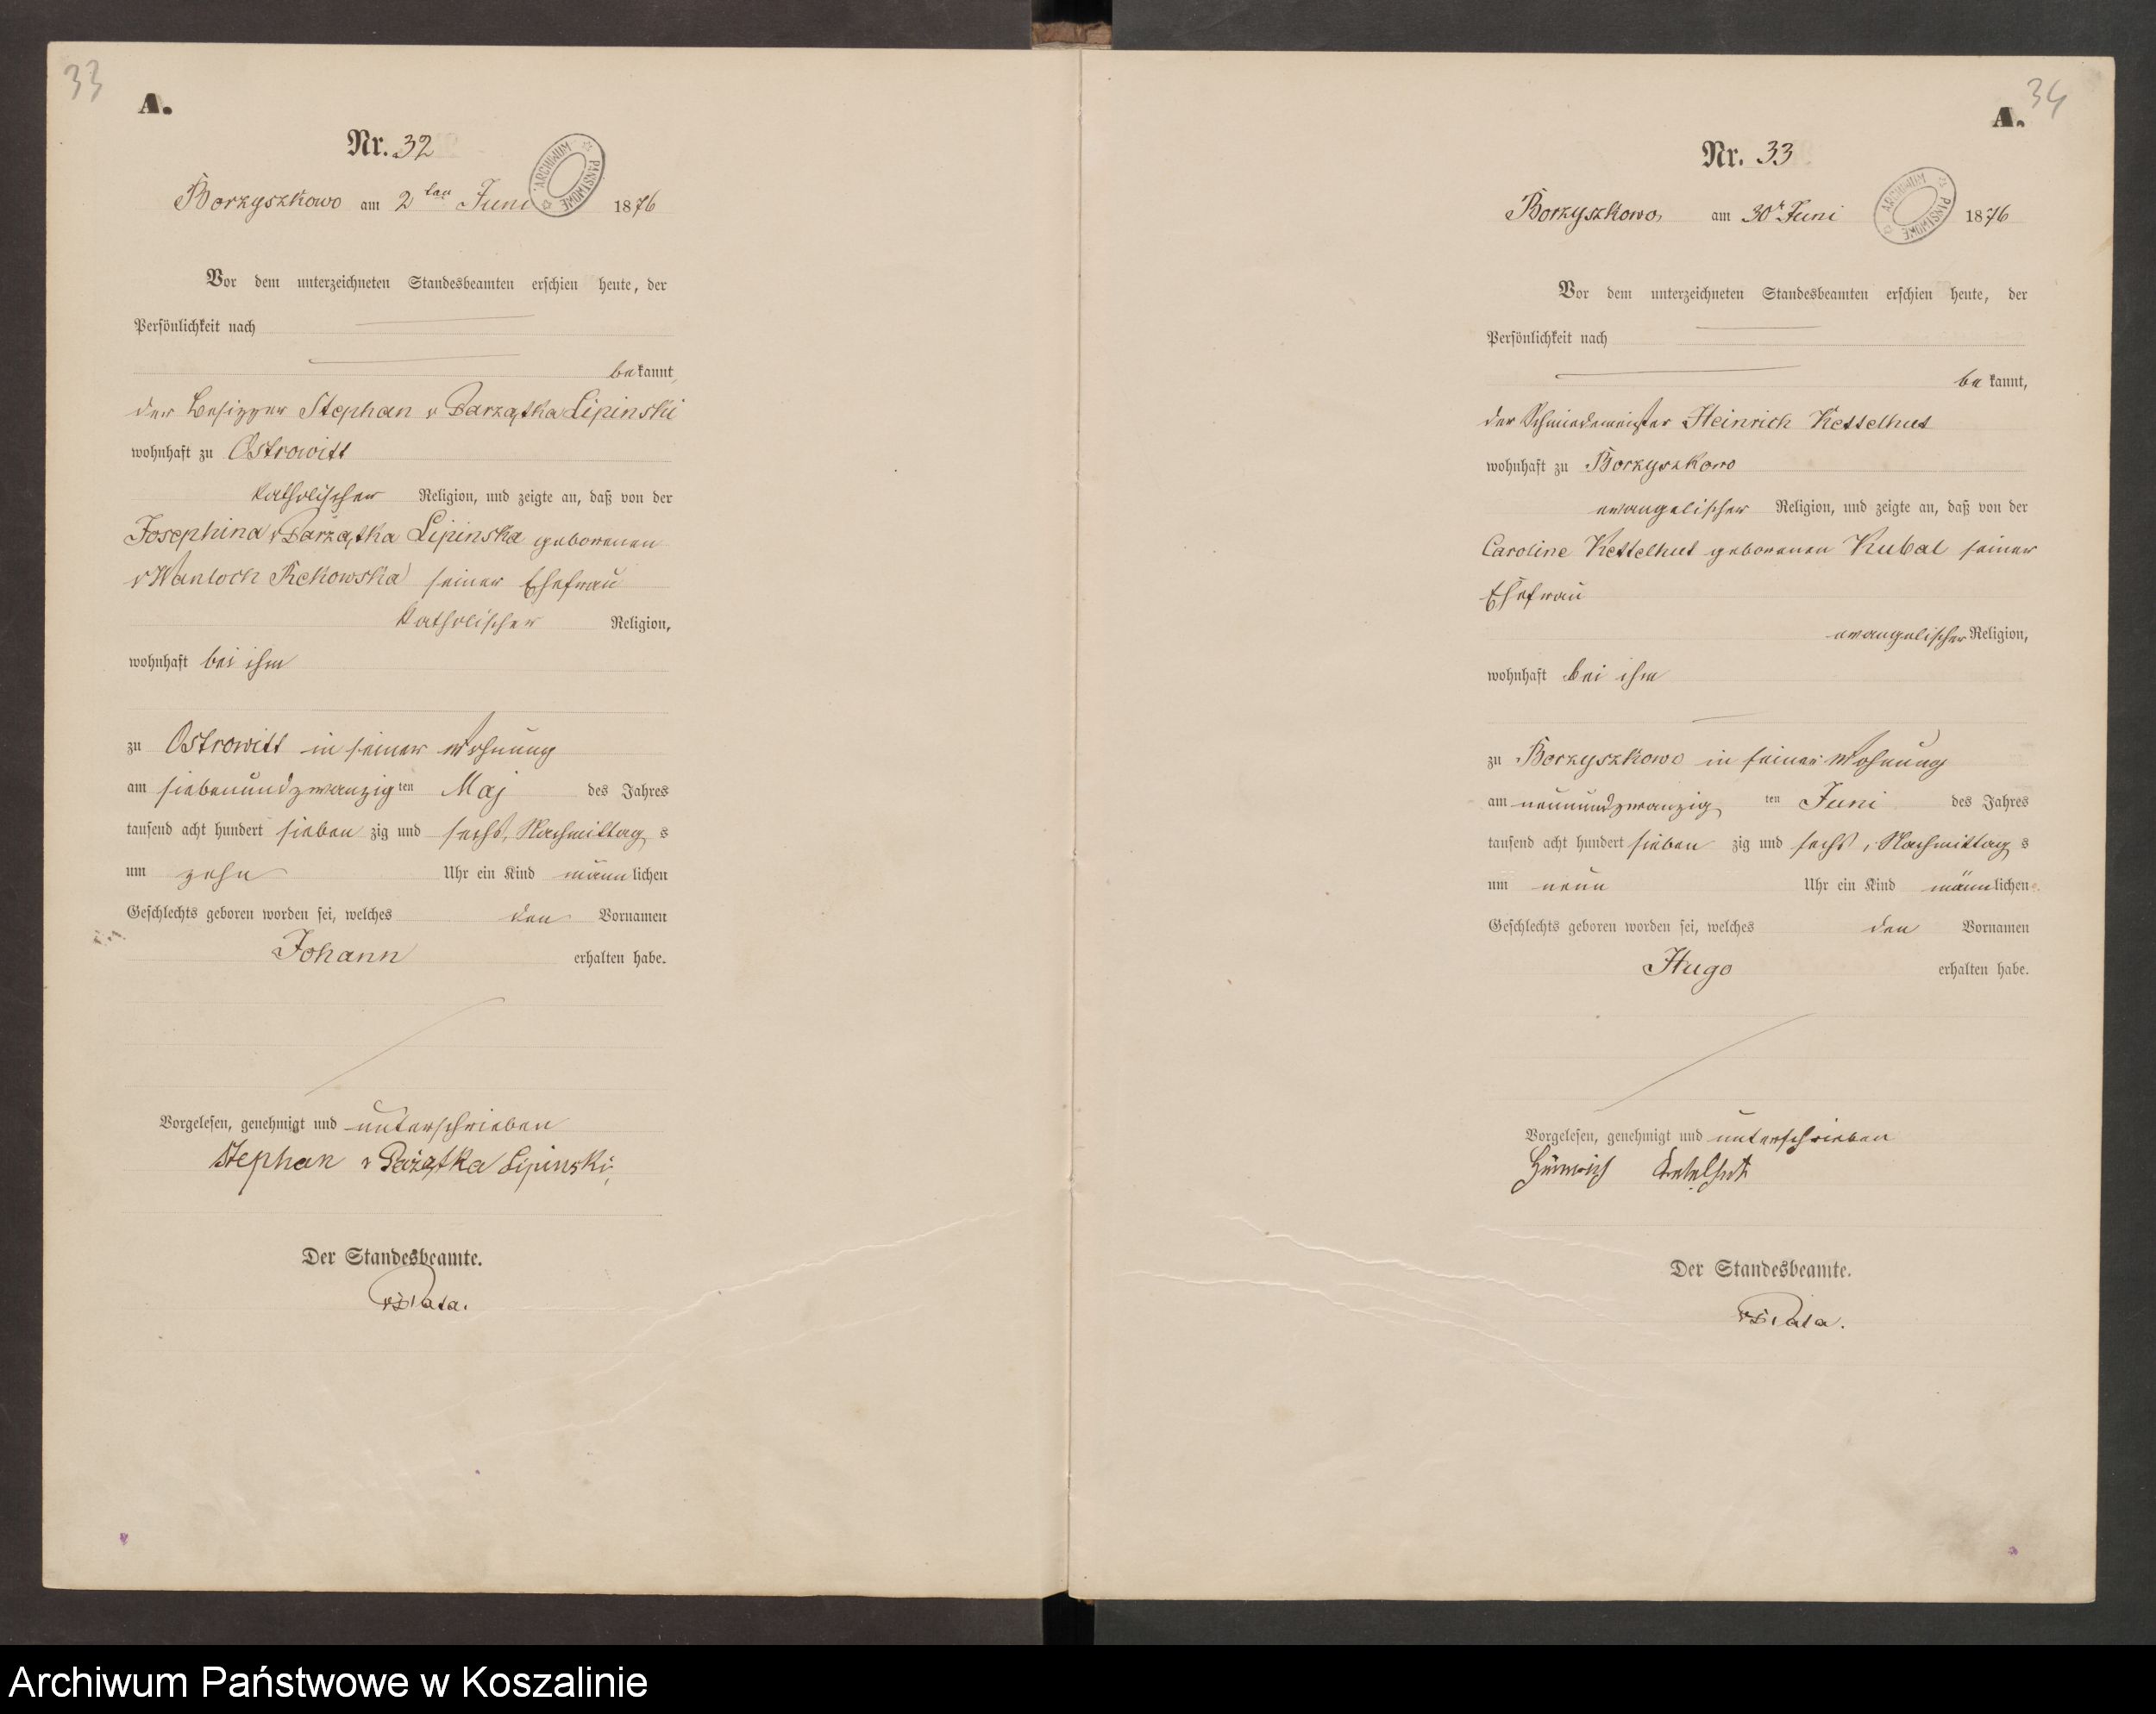 33
A.
Nr. 32
ARCHIWUM PAŃSTWOWE
Borzyszkowo am 2ten Juni 1876
Vor dem unterzeichneten Standesbeamten erschien heute, der
Persönlichkeit nach
bekannt,
der Besitzer Stephan v Parzątka Lipinski
wohnhaft zu Ostrowitt
katholischer Religion, und zeigte an, daß von der
Josephina v Parzątka Lipinska geborenen
v Wantoch Rekowska seiner Ehefrau
katholischer Religion,
wohnhaft bei ihm
zu Ostrowitt in seiner Wohnung
am siebenundzwanzigten Maj des Jahres
tausend acht hundert sieben zig und sechs, Nachmittags
um zehn Uhr ein Kind männlichen
Geschlechts geboren worden sei, welches den Vornamen
Johann erhalten habe.
Vorgelesen, genehmigt und unterschrieben
Stephan v Pażątka Lipinski,
Der Standesbeamte.
34
A.
Nr. 33
ARCHIWUM PAŃSTWOWE
Borzyszkowo, am 30t Juni 1876
Vor dem unterzeichneten Standesbeamten erschien heute, der
Persönlichkeit nach
be kannt,
der Schmiedemeister Heinrich Kettelhut
wohnhaft zu Borzyszkowo
evangelischer Religion, und zeigte an, daß von der
Caroline Kettelhut geborenen Kubal seiner
Ehefrau
evangelischer Religion,
wohnhaft bei ihm
zu Borzyszkowo in seiner Wohnung
am neunundzwanzig ten Juni des Jahres
tausend acht hundert sieben zig und sechs, Nachmittags
um neun Uhr ein Kind männlichen
Geschlechts geboren worden sei, welches den Vornamen
Hugo erhalten habe.
Vorgelesen, genehmigt und unterschrieben
Heinrich Kettelhut
Der Standesbeamte.
Archiwum Państwowe w Koszalinie